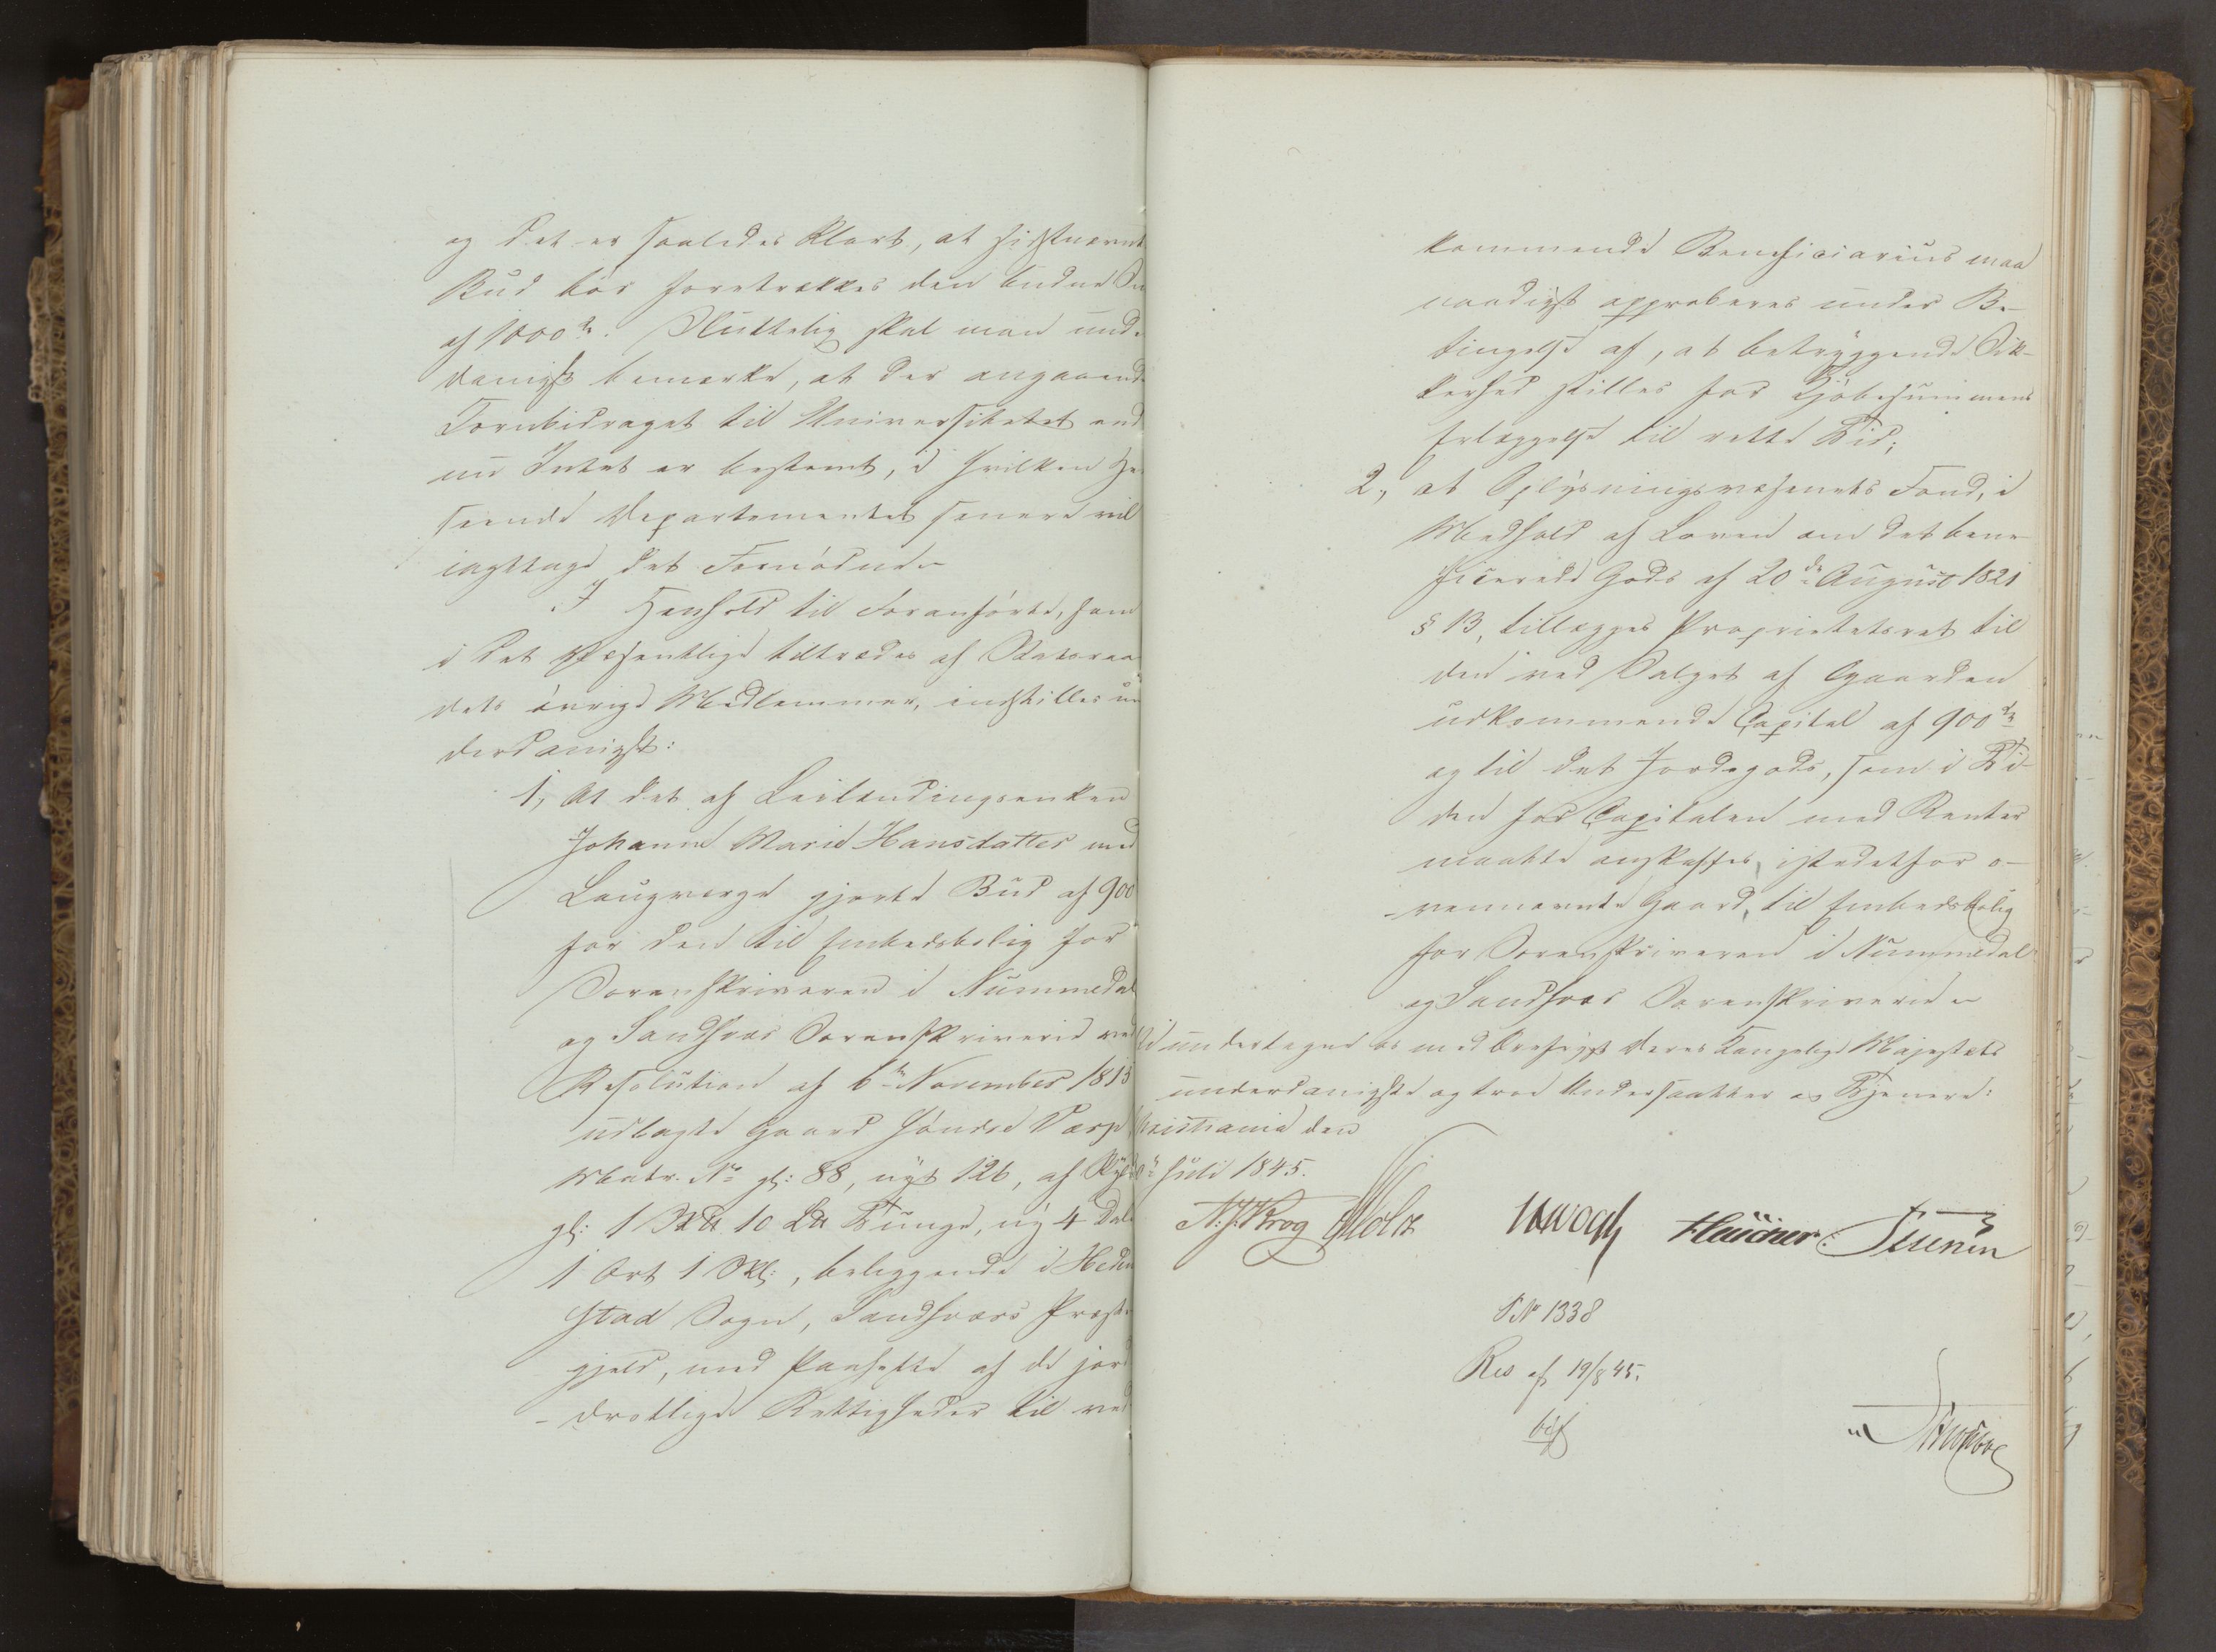 og det er saaledes klart, at sidstnævnte
Bud bør foretrækkes den budne
af 1000 . Sluttelig skal man unde
danigst bemærke, at der angaaende
Kornbidraget til Universitetet end
nu Intet er bestemt, i hvilken Hen
seende Departementet senere vil
iagttage det Fornødne.
I Henhold til Foranførte, som
i det Væsentlige tiltrædes af Statsraa
dets øvrige Medlemmer, indstilles un
derdanigst:
1, At det af Leilændingsenken
Johanne Marie Hansdatter med
Laugværge gjorte Bud af 900
for den til Embedsbolig for
Sorenskriveren i Nummedal
og Sandsvær Sorenskriverie ved
Resolution af 6te November 1813
udlagte Gaard Søndre
Matr. No gl: 88, nyt 126, af Skyld
gl: 1 10 Tunge, ny 4 Dal
1 Ort 1 Skl:, beliggende i Heden
stad Sogn, Sandsværs Præste
gjeld, med Paahefte af de jord
-drotlige Rettigheder til ved
kommende Beneficiarius maa
naadigst approberes under Be-
tingelse af, at betryggende Sik-
kerhed stilles for Kjøbesummens
Erlæggelse til rette Tid;
2, at Oplysningsvæsenets Fond, i
Medhold af Loven om det bene-
ficerede Gods af 20de August 1821
§ 13, tillægges Proprietetsret til
den ved Salget af Gaarden
udkommende Capital af 900
og til det Jordegods, som i Ti-
den for Capitalen med Renter
maatte anskaffes, istedetfor o-
-vennævnte Gaard, til Embedsbolig
for Sorenskriveren i Nummedal
og Sandsvær Sorenskriverie.
Vi undertegne os med Ærefrygt Deres Kongelige Majestæts
underdanigste og troe Undersaatter og Tjenere:
Christiania den
Juli 1845.
N. J. Krog Holst Vogh
No 1338
Res af 19/8 45.